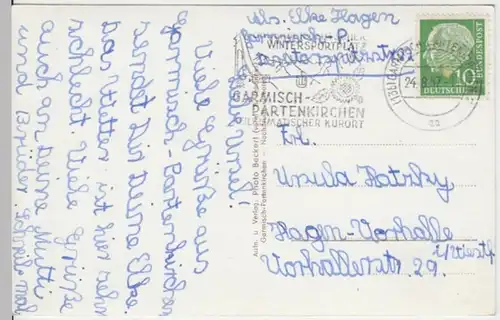 Abs. Elke Hagen
Garmisch-P.
WINTERSPORTPLATZ
GARMISCH-
PARTENKIRCHEN
HEILKLIMATISCHER KURORT
24.
10
DEUTSCHE
BUNDESPOST
Liebe Ursel!
Viele Grüße aus
Garmisch-Partenkirchen
sendet Dir Deine Elke.
Das Wetter ist hier sehr
schlecht. Viele Grüße
auch an Deine Mutti
und Brüder. Schreib mal
Autn. u. Verlag: Photo Beckert
Garmisch-Partenkirchen
Frl.
Ursula
Hagen-Vorhalle
i/Westf.
Vorhallerstr. 29.